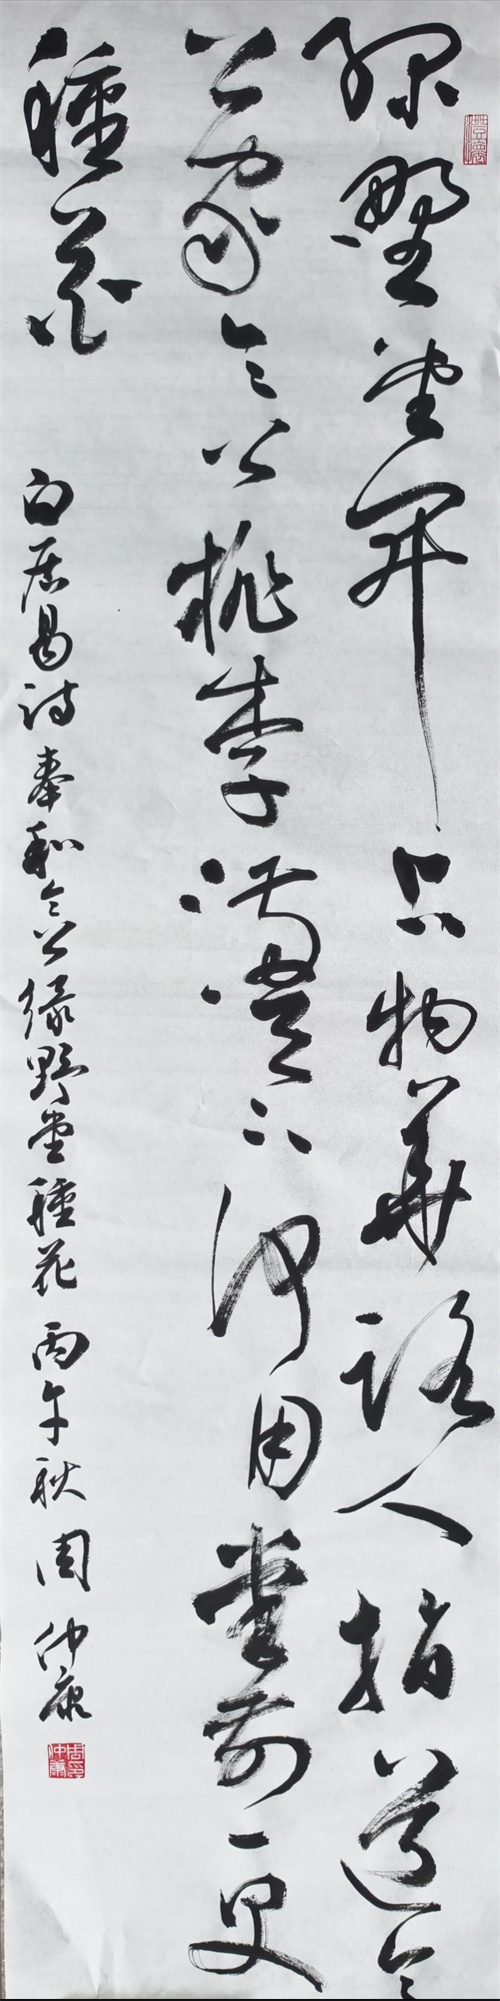 綠野堂開占物華路人指道令
公家令公桃李滿天下何用堂前更
種花
白居易詩奉和令公綠野堂種花 丙午秋 周仲康
周印仲康